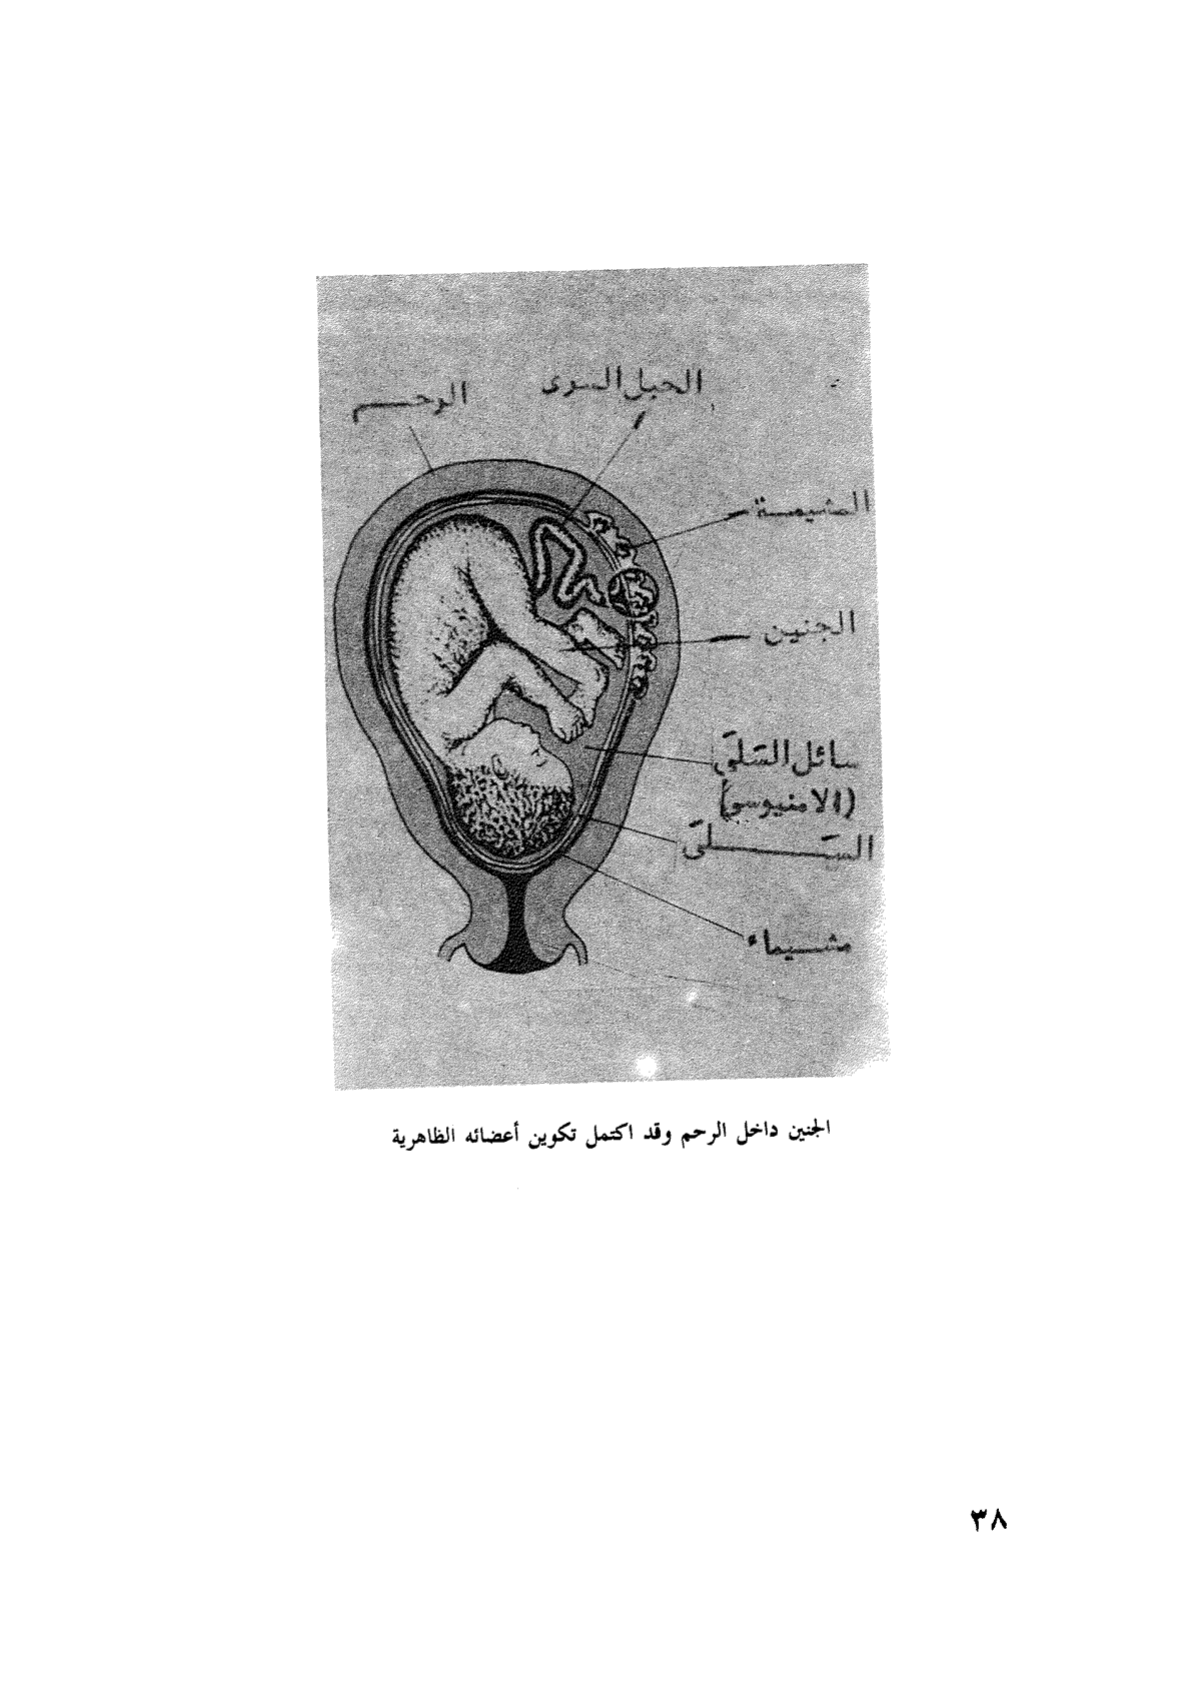 الحبل السرى
الرحم
المشيمة
الجنين
سائل السَلَى
(الامنيوسي)
السَلَى
مشيماء
الجنين داخل الرحم وقد اكتمل تكوين أعضائه الظاهرية
٣٨